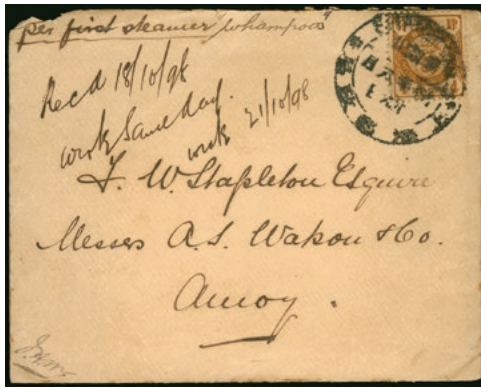 per first steamer "Whampoa"
Recd 18/10/98
wrote Same day.
wrote 21/10/98
F. W. Stapleton Esquire
Messrs A. S. Watson & Co.
Amoy.